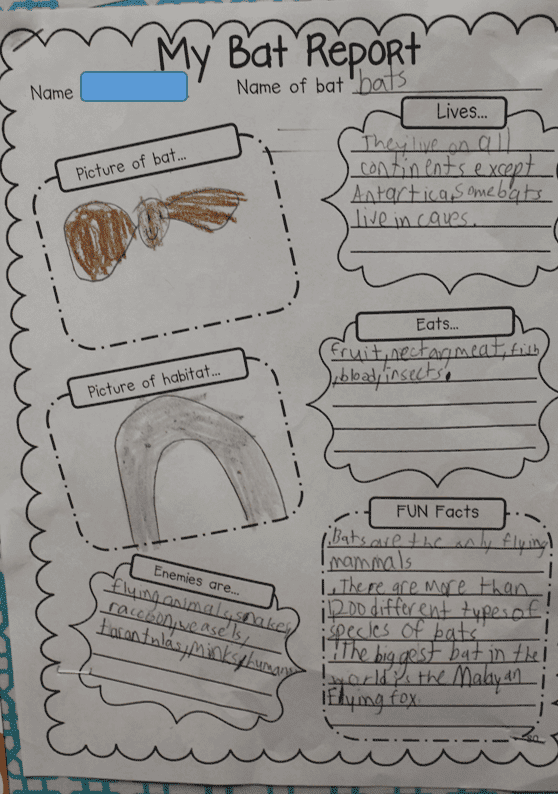 My Bat Report
Name
Name of bat bats
Lives...
They live on all
continents except
Antartica, Some bats
live in caves.
Picture of bat...
Eats...
fruit, nectar, meat, fish
, blood, insects.
Picture of habitat...
FUN Facts
. Bats are the only flying
mammals
. There are more than
1200 different types of
species of bats
. The biggest bat in the
world is the Malayan
Flying fox.
Enemies are...
flying animals, snakes,
raccoon, weasels,
tarantulas, Minks, humans